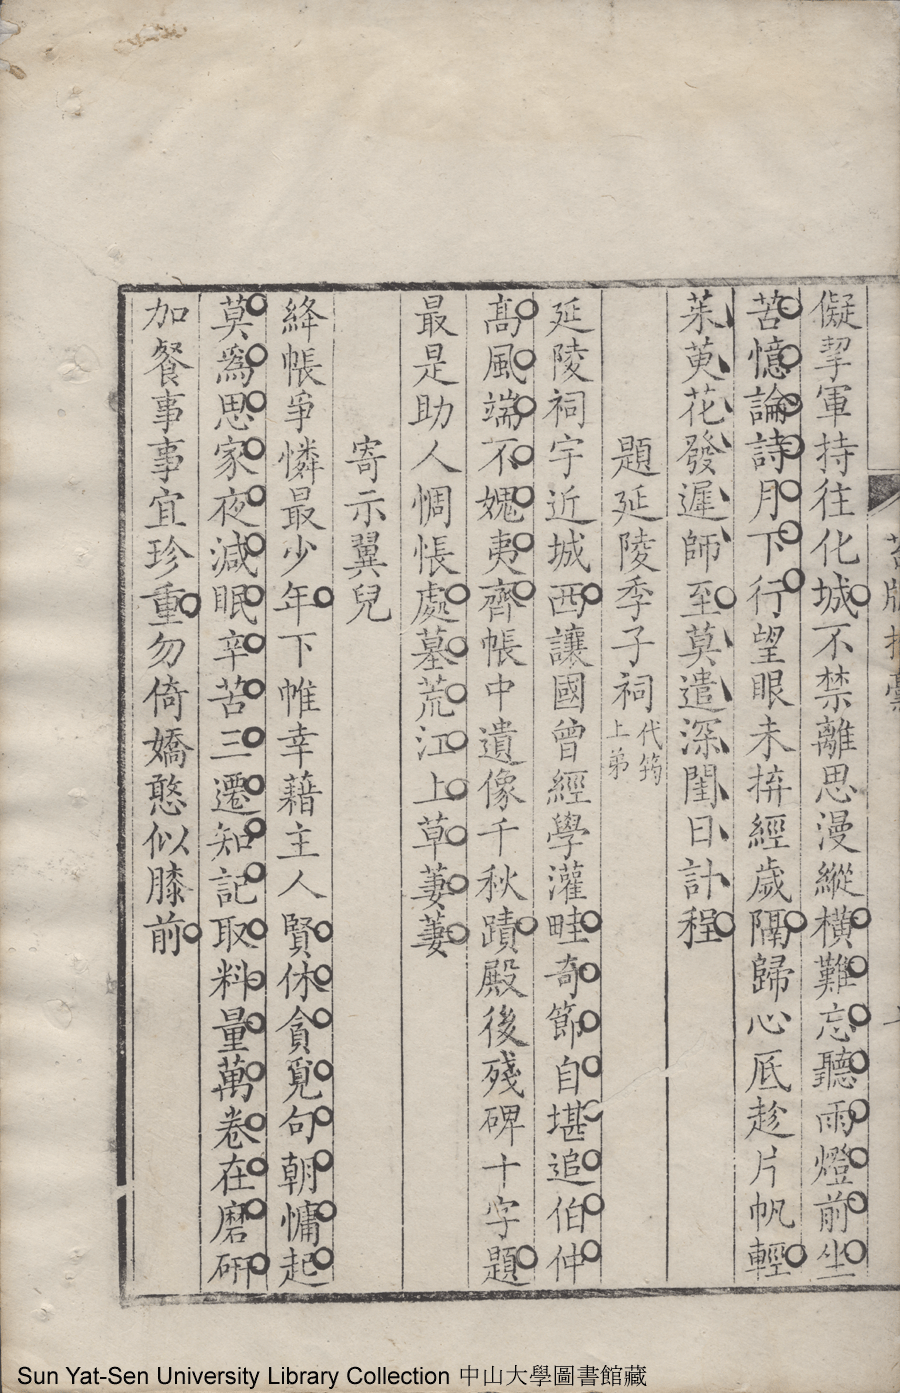 儗挈軍持往化城不禁離思漫縱橫難忘聽雨燈前坐
苦憶論詩月下行望眼未拚經歲隔歸心厎趁片帆輕
茱萸花發遲師至莫遣深閨日計程
題延陵季子祠代筠上弟
延陵祠宇近城西讓國曾經學灌畦奇節自堪追伯仲
高風端不媿夷齊帳中遺像千秋蹟殿後殘碑十字題
最是助人惆悵處墓荒江上草萋萋
寄示翼兒
絳帳爭憐最少年下帷幸藉主人賢休貪覓句朝慵起
莫為思家夜減眠辛苦三遷知記取料量萬卷在磨研
加餐事事宜珍重勿倚嬌憨似膝前
Sun Yat-Sen University Library Collection 中山大學圖書館藏